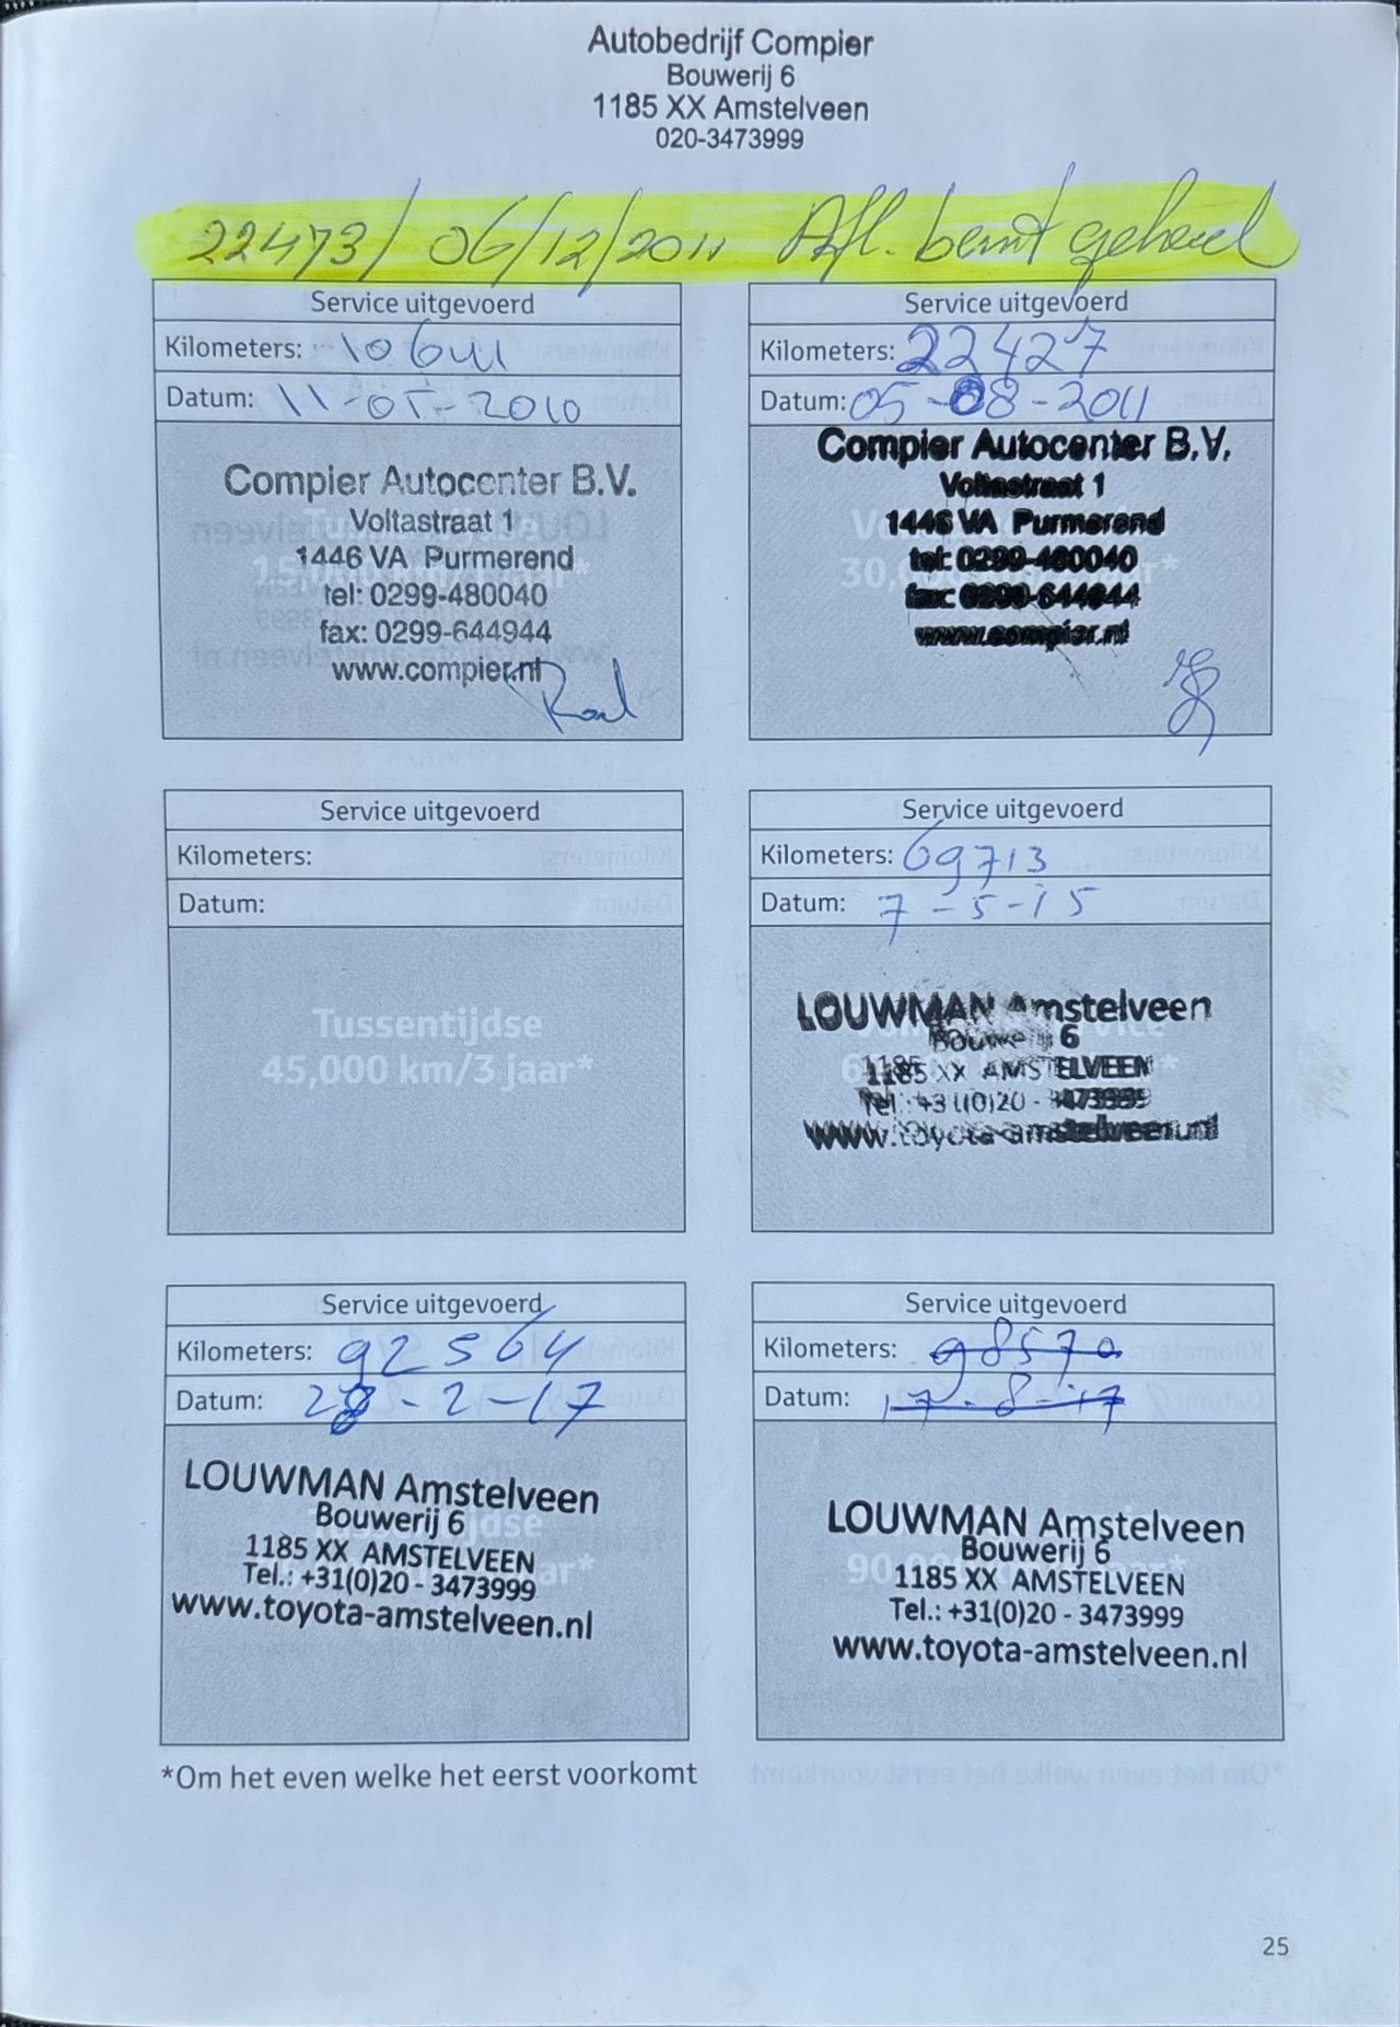 Autobedrijf Compier
Bouwerij 6
1185 XX Amstelveen
020-3473999
22473/ 06/12/2011 Afl. beurt geheel
Service uitgevoerd
Kilometers: 10641
Datum: 11-05-2010
Compier Autocenter B.V.
Voltastraat 1
1446 VA Purmerend
tel: 0299-480040
fax: 0299-644944
www.compier.nl
Service uitgevoerd
Kilometers: 22427
Datum: 05-08-2011
Compier Autocenter B.V.
Voltastraat 1
1446 VA Purmerend
tel: 0299-480040
fax: 0299-644944
www.compier.nl
Service uitgevoerd
Kilometers:
Datum:
Tussentijdse
45,000 km/3 jaar*
Service uitgevoerd
Kilometers: 69713
Datum: 7-5-15
LOUWMAN Amstelveen
Bouwerij 6
1185 XX AMSTELVEEN
Tel.: +31(0)20 - 3473999
www.toyota-amstelveen.nl
Service uitgevoerd
Kilometers: 92564
Datum: 28-2-17
LOUWMAN Amstelveen
Bouwerij 6
1185 XX AMSTELVEEN
Tel.: +31(0)20 - 3473999
www.toyota-amstelveen.nl
Service uitgevoerd
Kilometers: 98570
Datum: 17-8-17
LOUWMAN Amstelveen
Bouwerij 6
1185 XX AMSTELVEEN
Tel.: +31(0)20 - 3473999
www.toyota-amstelveen.nl
*Om het even welke het eerst voorkomt
25